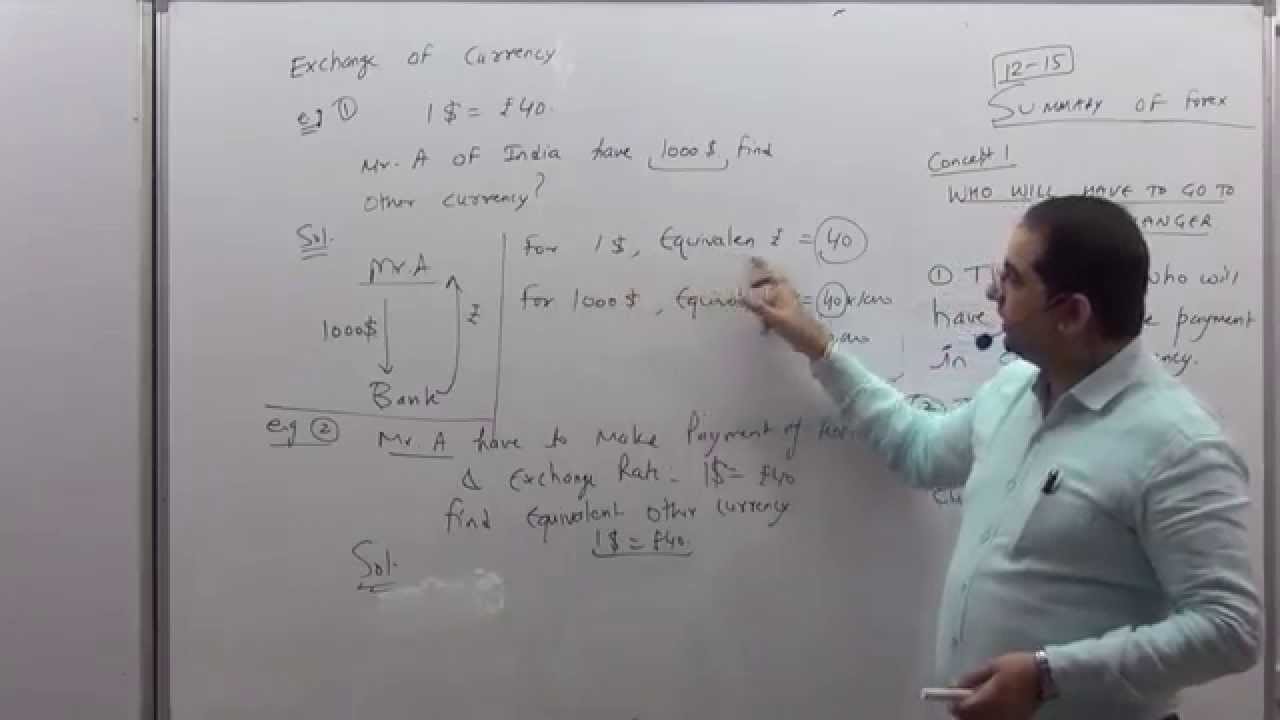 Exchange of Currency
eg ① 1$ = ₹40.
Mr. A of India have 1000$, find
other currency?
Sol.
Mr A
1000$
₹
Bank
for 1$, Equivalen ₹ = 40
for 1000$, = 40 x
eg ② Mr. A have to make Payment of
& Exchange Rate: 1$ = ₹40
find Equivalent other currency
1$ = ₹40.
Sol.
12-15
SUMMARY OF forex
Concept 1
WHO WILL HAVE TO GO TO
① who will
have payment
in
②